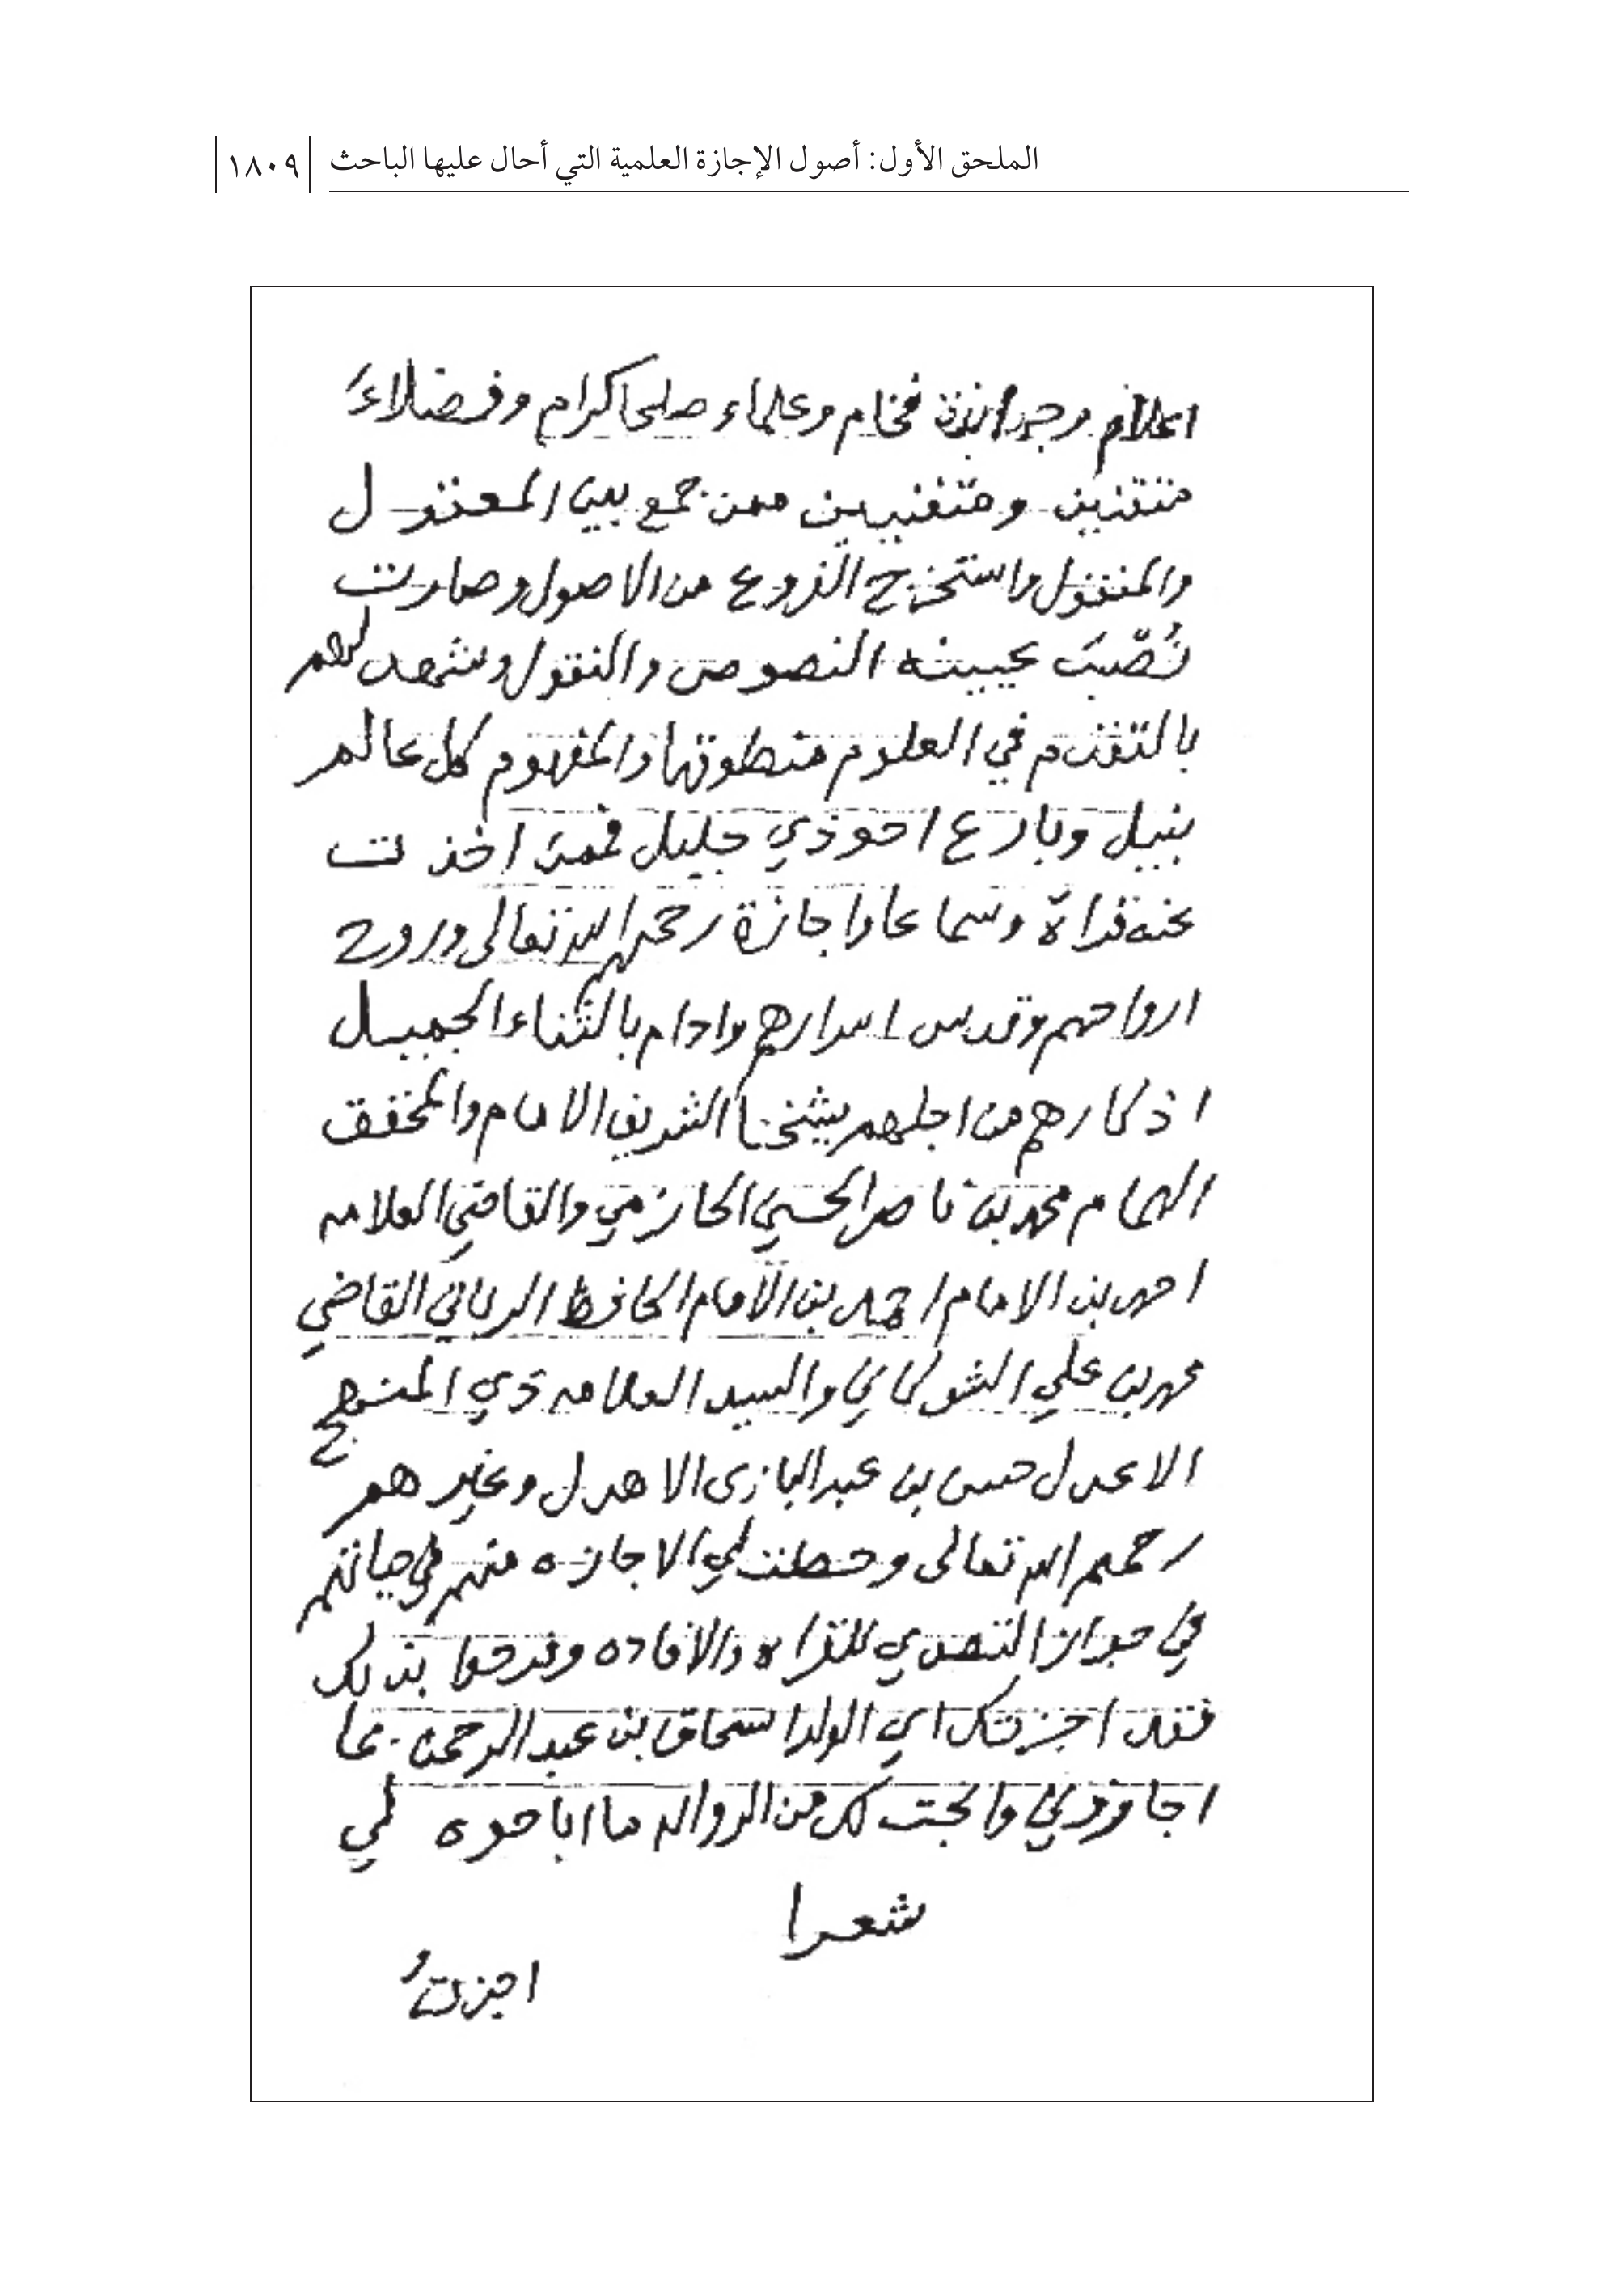 الملحق الأول: أصول الإجازة العلمية التي أحال عليها الباحث ١٨٠٩
اعلام وجهابذة فخام وعلماء صلحا كرام وفضلاء
متقنين ومتفننين ممن جمع بين المعقول
والمنقول واستخرج الفروع من الاصول وصارت
نُصْبَ عينيه النصوص والنقول وشهد لهم
بالتقدم في العلوم منطوقها والمفهوم كل عالم
نبيل وبارع احوذي جليل فممن اخذت
عنه قراة وسماعا واجازة رحمهم الله تعالى وروح
ارواحهم وقدس اسرارهم وادام بالثناء الجميل
اذكارهم من اجلهم شيخنا الشريف الامام والمحقق
الهمام محمد بن ناصر الحسني الحازمي والقاضي العلامه
احمد بن الامام بن الامام الحافظ الرباني القاضي
محمد بن علي الشوكاني والسيد العلامه ذي المنهج
الاعدل حسن بن عبد الباري الاهدل وغيرهم
رحمهم الله تعالى وحصلت لي الاجازه منهم في حياتهم
في جواز التصدي للقراه والافاده وفرحوا بذلك
فقد اجزتك اي الولد اسحاق بن عبد الرحمن بما
اجازوني وابحت لك من الروايه ما اباحوه لي
شعرا
اجزتُ